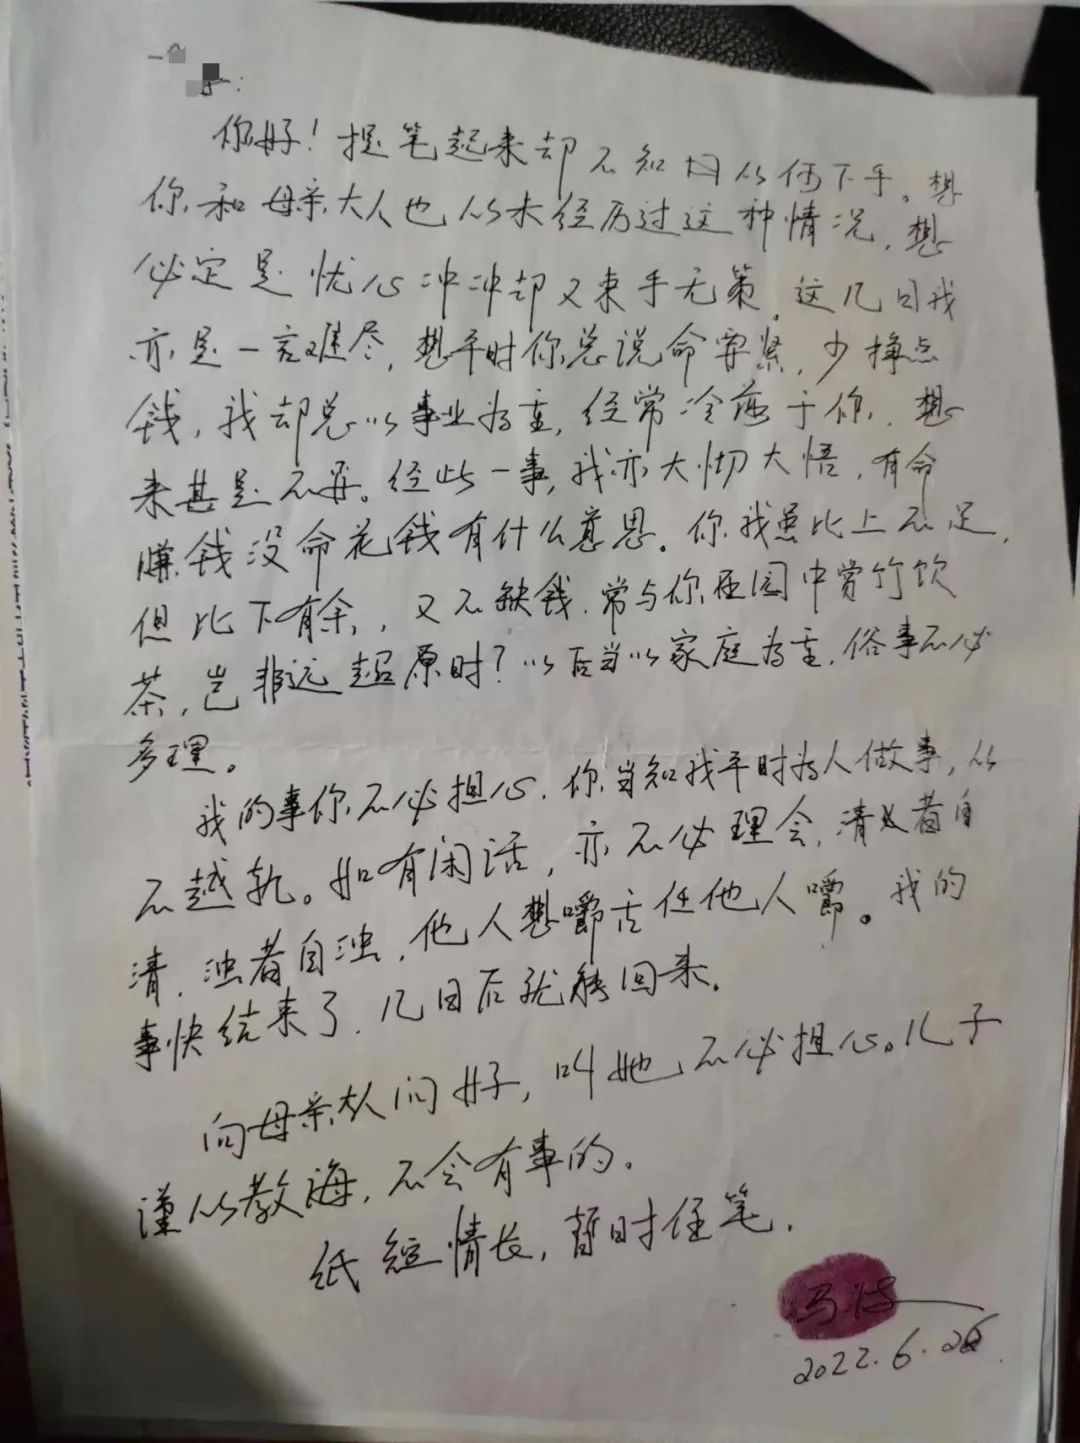 你好！提笔起来却不知从何下手。想
你和母亲大人也从未经历过这种情况，想
必定是忧心冲冲却又束手无策。这几日我
亦是一言难尽，想平时你总说命要紧，少挣点
钱，我却总以事业为重，经常冷落于你，想
来甚是不安。经此一事，我亦大彻大悟，有命
赚钱没命花钱有什么意思。你我虽比上不足，
但比下有余，又不缺钱，常与你在园中赏竹饮
茶，岂非远超原时？以后当以家庭为重，俗事不必
多理。
我的事你不必担心，你当知我平时为人做事，从
不越轨。如有闲话，亦不必理会，清者自
清，浊者自浊，他人想嚼舌任他人嚼。我的
事快结束了，几日后就能回来。
向母亲大人问好，叫她不必担心。儿子
谨从教诲，不会有事的。
纸短情长，暂时住笔，
2022.6.26